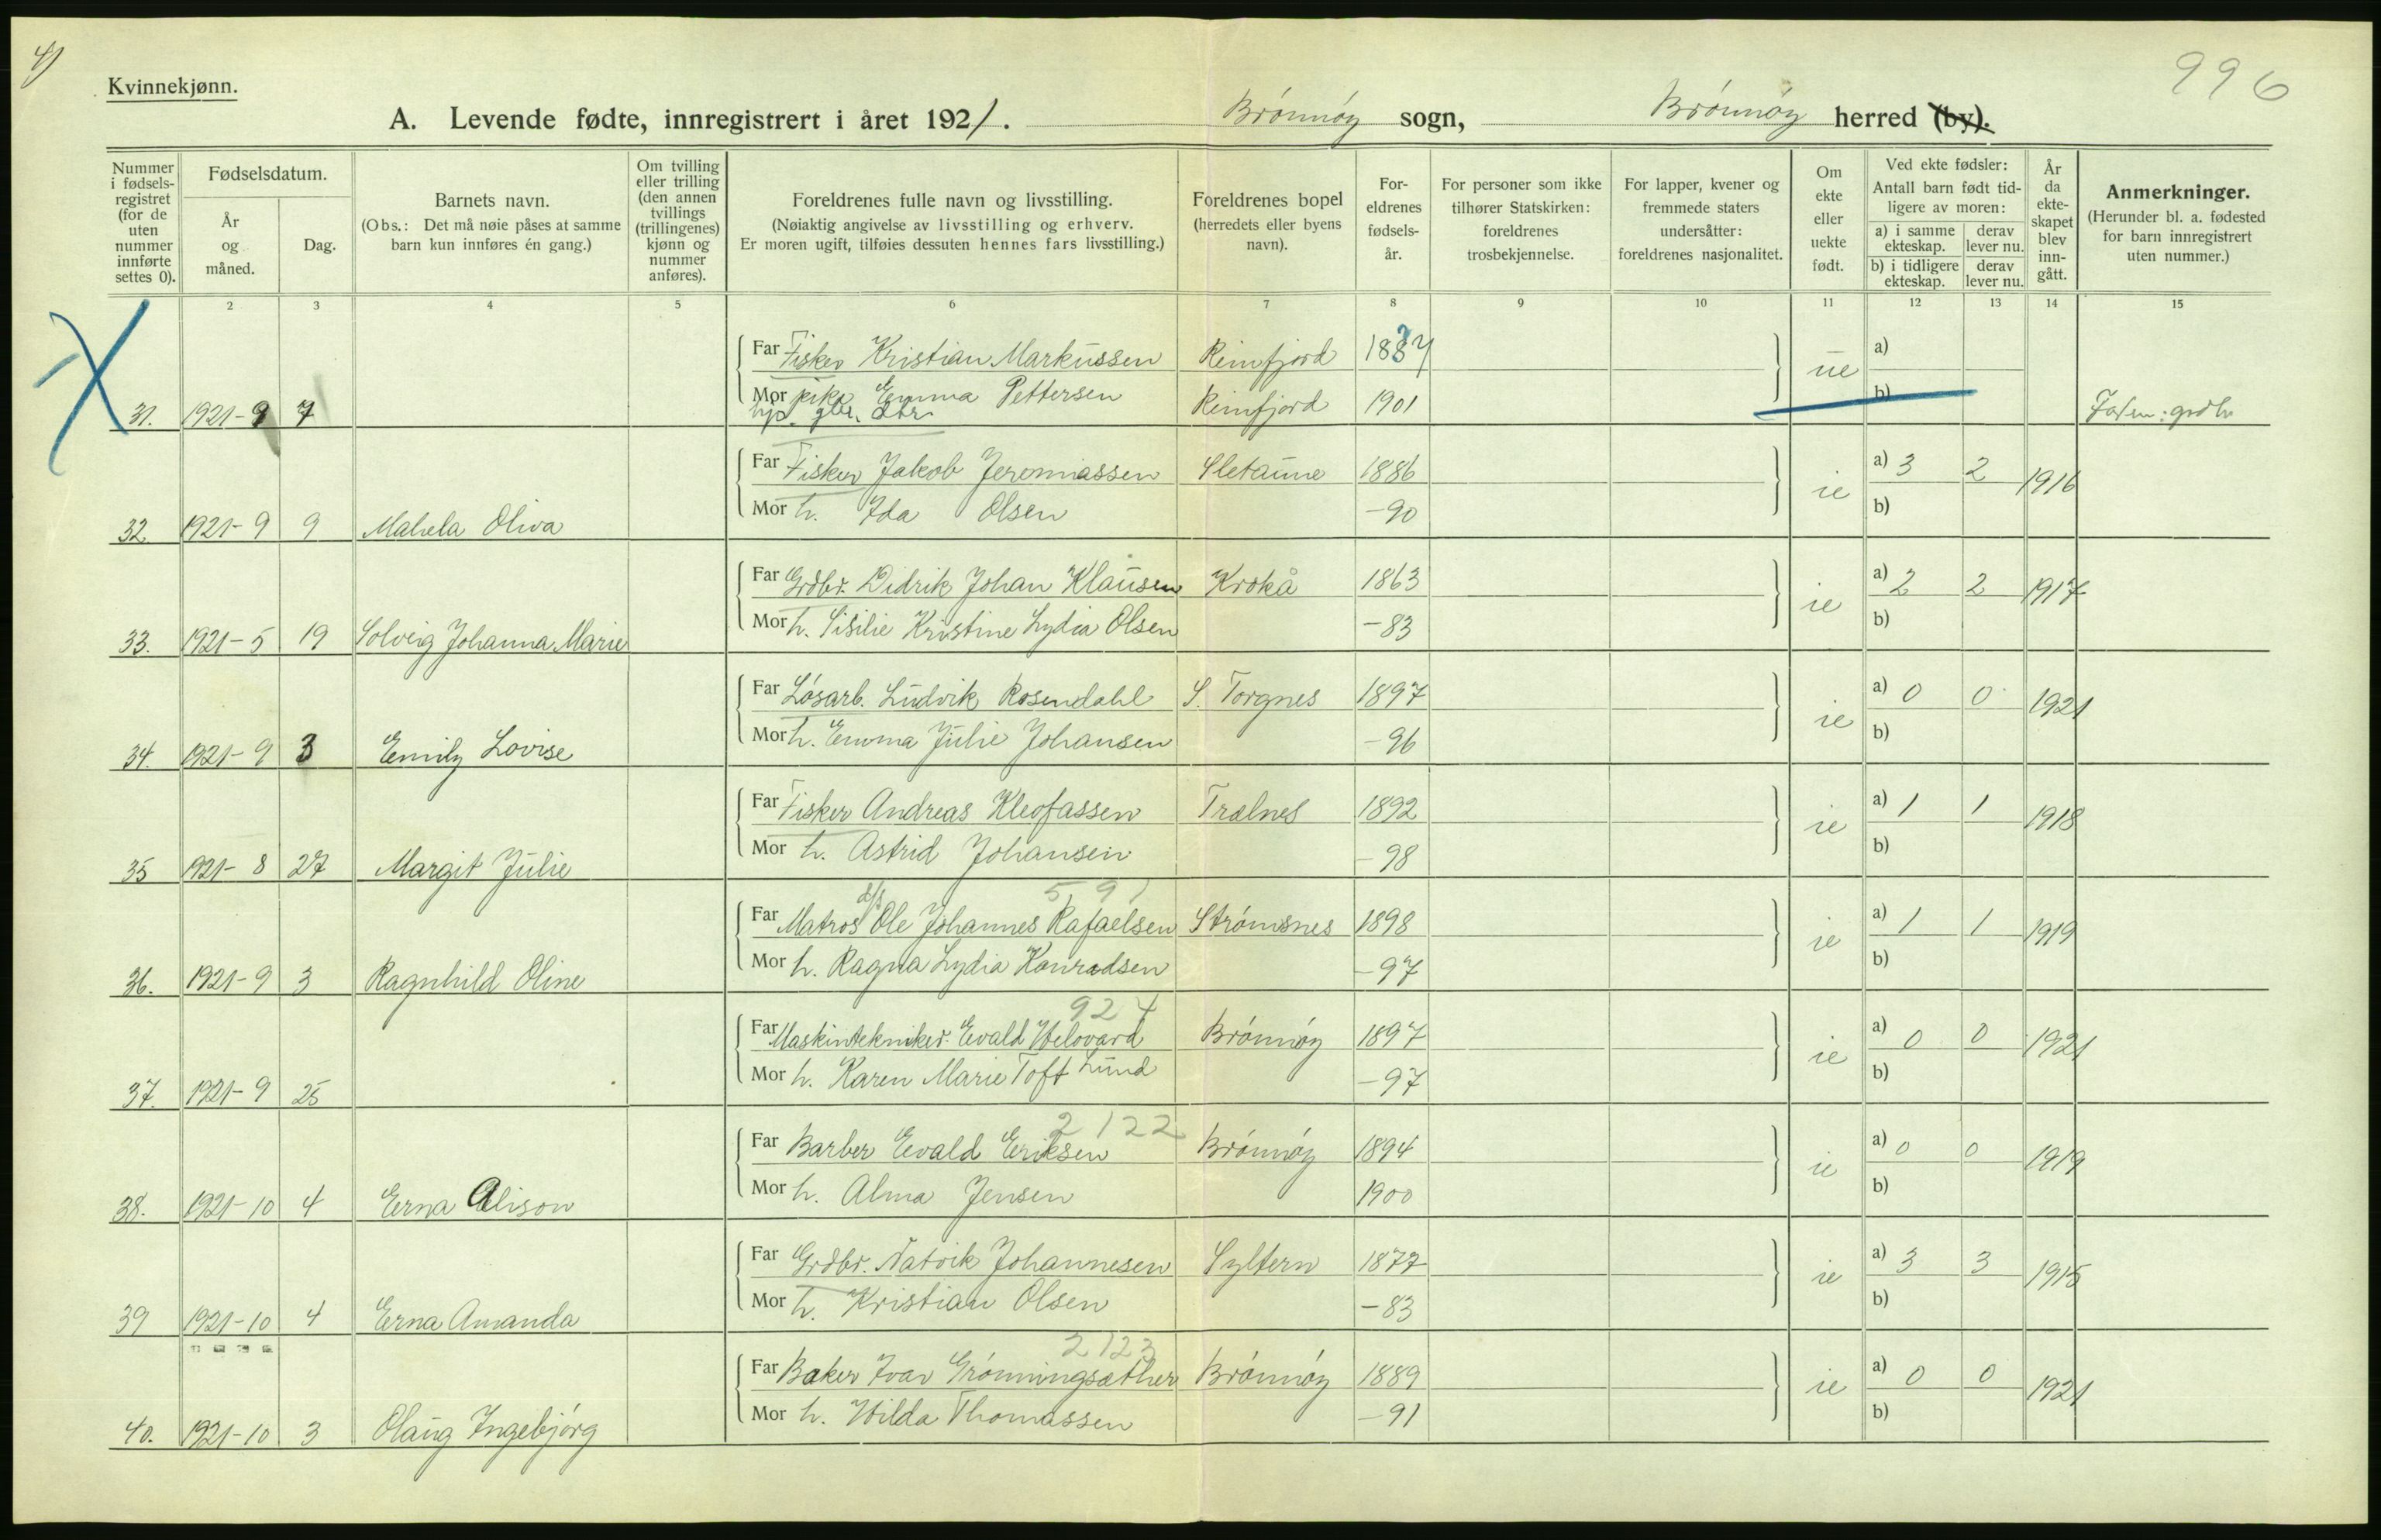 4)
996
Kvinnekjønn.
A. Levende fødte, innregistrert i året 1921. Brönnöy sogn, Brönnöy herred (by).
Nummer i fødsels-registret (for de uten nummer innførte settes 0).
Fødselsdatum.
År og måned.
Dag.
Barnets navn.
(Obs.: Det må nøie påses at samme barn kun innføres én gang.)
Om tvilling eller trilling (den annen tvillings (trillingenes) kjønn og nummer anføres).
Foreldrenes fulle navn og livsstilling.
(Nøiaktig angivelse av livsstilling og erhverv. Er moren ugift, tilføies dessuten hennes fars livsstilling.)
Foreldrenes bopel (herredets eller byens navn).
For-eldrenes fødsels-år.
For personer som ikke tilhører Statskirken: foreldrenes trosbekjennelse.
For lapper, kvener og fremmede staters undersåtter: foreldrenes nasjonalitet.
Om ekte eller uekte født.
Ved ekte fødsler: Antall barn født tid-ligere av moren:
a) i samme ekteskap. derav lever nu.
b) i tidligere ekteskap. derav lever nu.
År da ekte-skapet blev inn-gått.
Anmerkninger.
(Herunder bl. a. fødested for barn innregistrert uten nummer.)
2 3 4 5 6 7 8 9 10 11 12 13 14 15
Far Fisker Kristian Markussen Reinfjord 1887 ue a)
Mor pike Emma Pettersen Reinfjord 1901 b)
31. 1921-9 7
Far Fisker Jakob Jeremiassen Sletaune 1886 ie a) 3 2 1916
Mor h. Ida Olsen -90 b)
32. 1921-9 9 Mahela Oliva
Far Grdbr. Didrik Johan Klausen Krokå 1863 ie a) 2 2 1917
Mor h. Sisilie Kristine Lydia Olsen -83 b)
33. 1921-5 19 Solveig Johanna Marie
Far Lósarb. Ludvik Rosendahl S. Torgnes 1897 ie a) 0 0 1921
Mor h. Emma Julie Johansen -96 b)
34. 1921-9 3 Emily Lovise
Far Fisker Andreas Kleofassen Trælnes 1892 ie a) 1 1 1918
Mor h. Astrid Johansen -98 b)
35 1921-8 27 Margit Julie
591
Far Matros Ole Johannes Rafaelsen Strömsnes 1898 ie a) 1 1 1919
Mor h. Ragna Lydia Konradsen -97 b)
36. 1921-9 3 Ragnhild Oline
924
Far Maskintekniker Evald Helovard Brönnöy 1897 ie a) 0 0 1921
Mor h. Karen Marie Toft Lund -97 b)
37. 1921-9 25
2122
Far Barber Evald Eriksen Brönnöy 1894 ie a) 0 0 1919
Mor h. Alma Jensen 1900 b)
38. 1921-10 4 Erna Alison
Far Grdbr. Natvik Johannesen Syltern 1877 ie a) 3 3 1915
Mor h. Kristian Olsen -83 b)
39 1921-10 4 Erna Amanda
2123
Far Baker Ivar Grönningsæther Brönnöy 1889 ie a) 0 0 1921
Mor h. Hilda Thomassen -91 b)
40. 1921-10 3 Olaug Ingebjörg